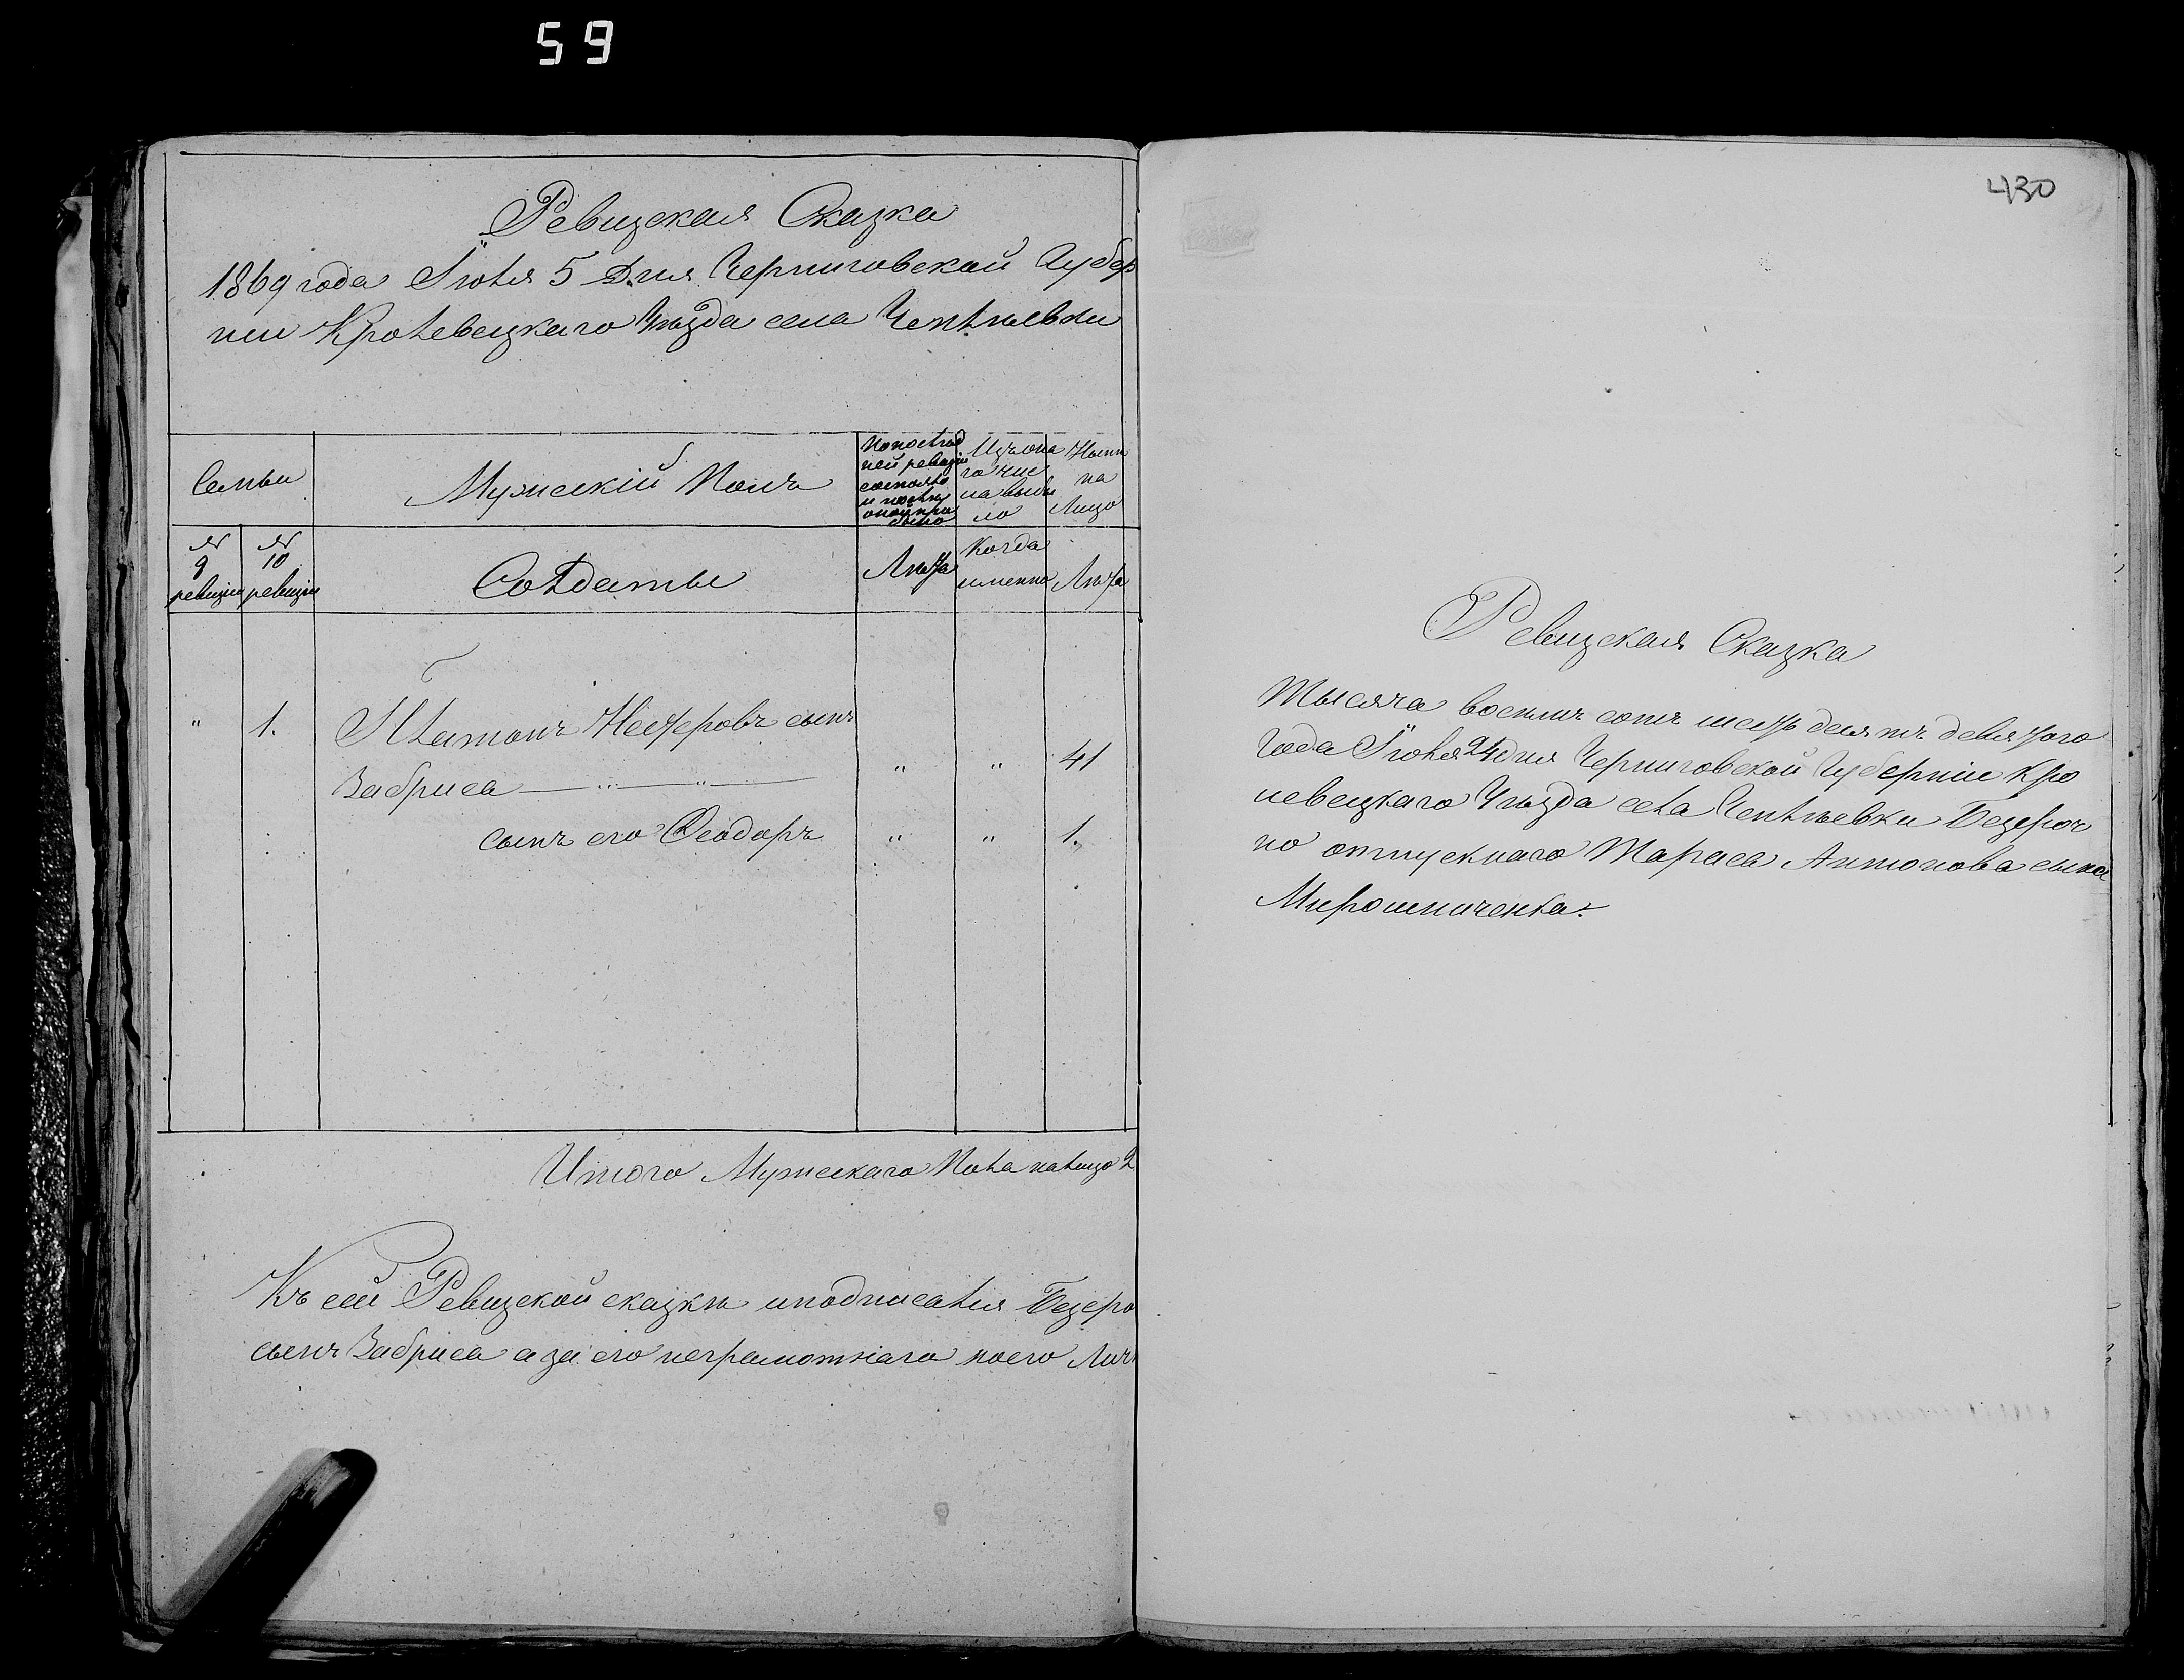 59
Ревизская Сказка
1869 года Іюля 5 Дня Черниговской Губер
ніи Кролевецкаго Уѣзда села Чеплѣевки
Семьи
Мужескій Полъ
По послѣд
ней ревизіи
состояло
и послѣ
оной при
было
Изъ она
го чис
ла выбы
ло
Нынѣ
на
Лицо
№
9
ревизіи
№
10
ревизіи
Солдаты
Лѣта
Когда
именно
Лѣта
" 1. Платонъ Нестеровъ сынъ
Забриса — " — " — " " 41
сынъ его Ѳеодоръ " " 1.
Итого Мужескаго Пола налицо 2
Къ сей Ревизской сказкѣ подписался Безсро
сынъ Забриса а за его неграмотнаго по его Лич
430
Ревизская Сказка
Тысяча восемь сотъ шесть десятъ девятого
Года Іюля 24 дня Черниговской Губерніи Кро
левецкаго Уѣзда села Чеплѣевки Безсроч
но отпускнаго Тараса Антонова сына
Мирошниченка.